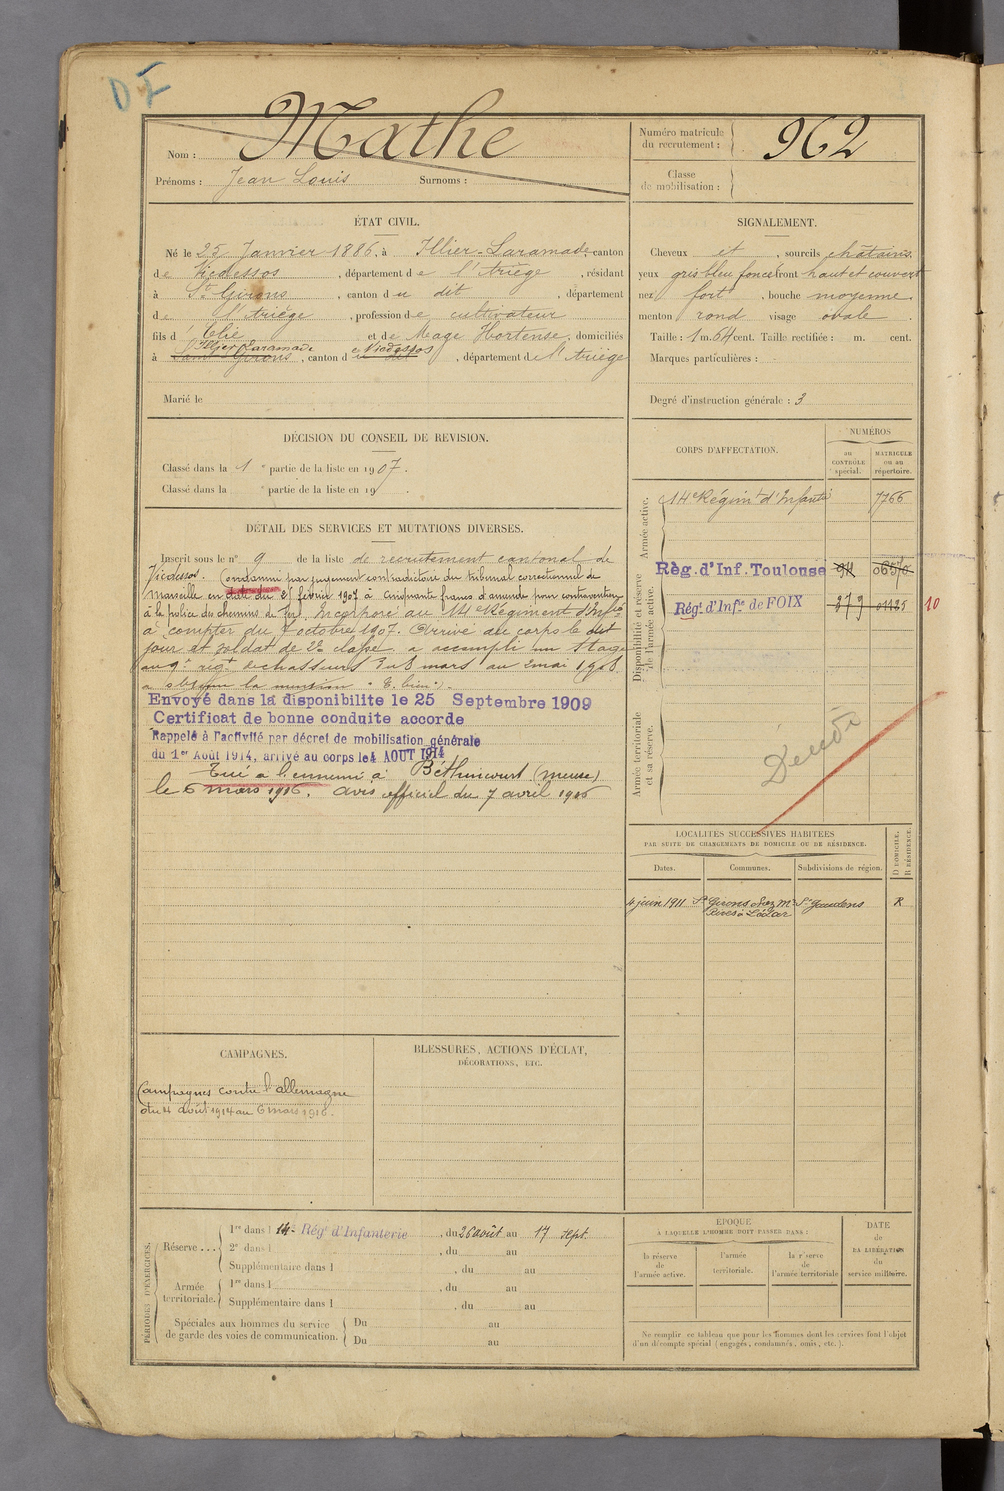 DI
Nom : Mathe
Prénoms : Jean Louis Surnoms :
Numéro matricule du recrutement : 962
Classe de mobilisation :
ÉTAT CIVIL.
Né le 25 Janvier 1886, à Illier-Laramade, canton
de Vicdessos, département de l'Ariège, résidant
à St Girons, canton du dit, département
de l'Ariège, profession de cultivateur
fils d' Elie et de Mage Hortense, domiciliés
Illier Laramade Vicdessos
à Saint Girons, canton de dit, département de l'Ariège
Marié le
SIGNALEMENT.
Cheveux et, sourcils châtains
yeux gris bleu foncé front haut et couvert
nez fort, bouche moyenne
menton rond visage ovale.
Taille : 1 m. 64 cent. Taille rectifiée : m. cent.
Marques particulières :
Degré d'instruction générale : 3
DÉCISION DU CONSEIL DE REVISION.
Classé dans la 1e partie de la liste en 1907.
Classé dans la e partie de la liste en 19 .
DÉTAIL DES SERVICES ET MUTATIONS DIVERSES.
Inscrit sous le n° 9 de la liste de recrutement cantonal de
Vicdessos. Condamné par jugement contradictoire du tribunal correctionnel de
Marseille en date du 21 février 1907 à cinquante francs d'amende pour contravention
à la police des chemins de fer. Incorporé au 14e Régiment d'Infie
à compter du 7 octobre 1907. Arrivé au corps le dit
jour et soldat de 2e classe. a accompli un stage
au 9e rigt de chasseurs du 8 mars au 2 mai 1908
a obtenu la mention "T. bien".
Envoyé dans la disponibilite le 25 Septembre 1909
Certificat de bonne conduite accorde
Rappelé à l'activité par décret de mobilisation générale
du 1er Août 1914, arrivé au corps le 4 AOUT 1914
Tué à l'ennemi à Béthincourt (meuse)
le 6 mars 1916. avis officiel du 7 avril 1916
CORPS D'AFFECTATION.
NUMÉROS
au CONTRÔLE spécial.
MATRICULE ou au répertoire.
Armée active.
14e Régimt d'Infanterie 7766
Disponibilité et réserve de l'armée active.
Règ. d'Inf. Toulouse 94 06570
Régt d'Infie de FOIX 279 01125 10
Armée territoriale et sa réserve.
Décédé
LOCALITÉS SUCCESSIVES HABITÉES
PAR SUITE DE CHANGEMENTS DE DOMICILE OU DE RÉSIDENCE.
Dates. Communes. Subdivisions de région. D DOMICILE. R RÉSIDENCE.
4 juin 1911 St Girons chez Mr St Gaudens R
CAMPAGNES.
Campagnes contre l'allemagne
du 4 août 1914 au 6 mars 1916.
BLESSURES, ACTIONS D'ÉCLAT,
DÉCORATIONS, ETC.
PÉRIODES D'EXERCICES.
Réserve...
1re dans l 14e Régt d'Infanterie, du 26 août au 17 sept.
2e dans l , du au
Supplémentaire dans l , du au
Armée territoriale.
1re dans l , du au
Supplémentaire dans l , du au
Spéciales aux hommes du service de garde des voies de communication.
Du au
Du au
EPOQUE
À LAQUELLE L'HOMME DOIT PASSER DANS :
la réserve de l'armée active.
l'armée territoriale.
la réserve de l'armée territoriale
DATE de LA LIBÉRATION du service militaire.
Ne remplir ce tableau que pour les hommes dont les services font l'objet
d'un décompte spécial (engagés, condamnés, omis, etc.).